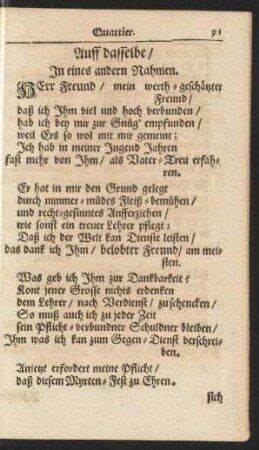 Quartier. 91
Auff dasselbe/
In eines andern Nahmen.
HErr Freund/ mein werth-geschätzter
Freund/
daß ich Ihm viel und hoch verbunden/
hab ich bey mir zur Gnüg' empfunden/
weil Ers so wol mit mir gemeint;
Ich hab in meiner Jugend Jahren
fast mehr von Ihm/ als Vater-Treu erfah-
ren.
Er hat in mir den Grund gelegt
durch nimmer-müdes Fleiß-bemühen/
und recht-gesinntes Aufferziehen/
wie sonst ein treuer Lehrer pflegt;
Daß ich der Welt kan Dienste leisten/
das danck ich Ihm/ belobter Freund/ am mei-
sten.
Was geb ich Ihm zur Danckbarkeit?
Kont jener Grosse nichts erdenken
dem Lehrer/ nach Verdienst/ zu schencken/
So muß auch ich zu jeder Zeit
sein Pflicht-verbundner Schuldner bleiben/
Ihm was ich kan zum Gegen-Dienst verschrei-
ben.
Anjetzt erfordert meine Pflicht/
daß diesem Myrten-Fest zu Ehren.
sich